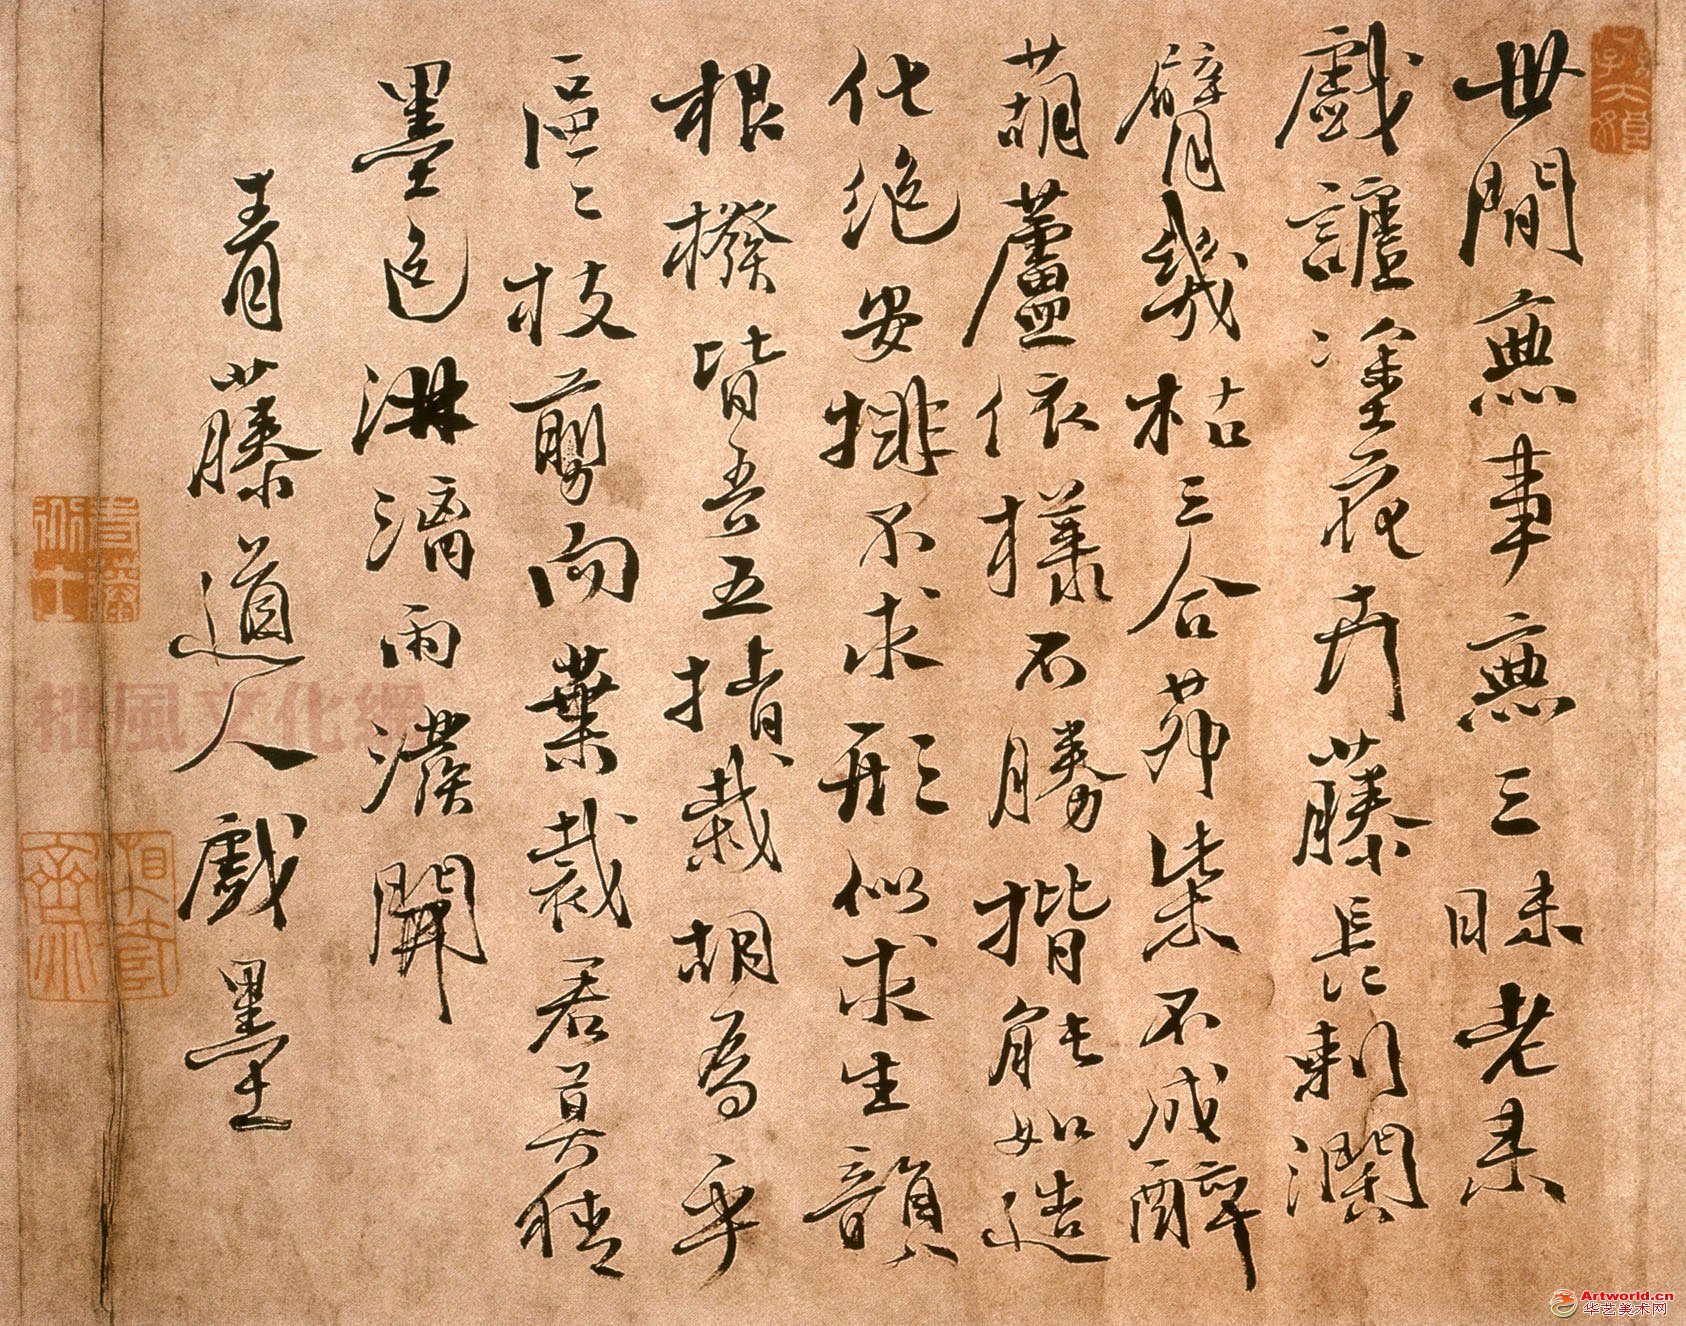 世間無事無三昧老來
戲謔塗花卉藤長刺濶
臂幾枯三合茆柴不成醉
葫蘆依樣不勝揩能如造
化絕安排不求形似求生韻
根撥皆吾五指栽胡為乎
區々枝剪而葉裁君莫猜
墨色淋漓雨潑開
青藤道人戲墨
拙風文化網
Artworld.cn
华艺美术网